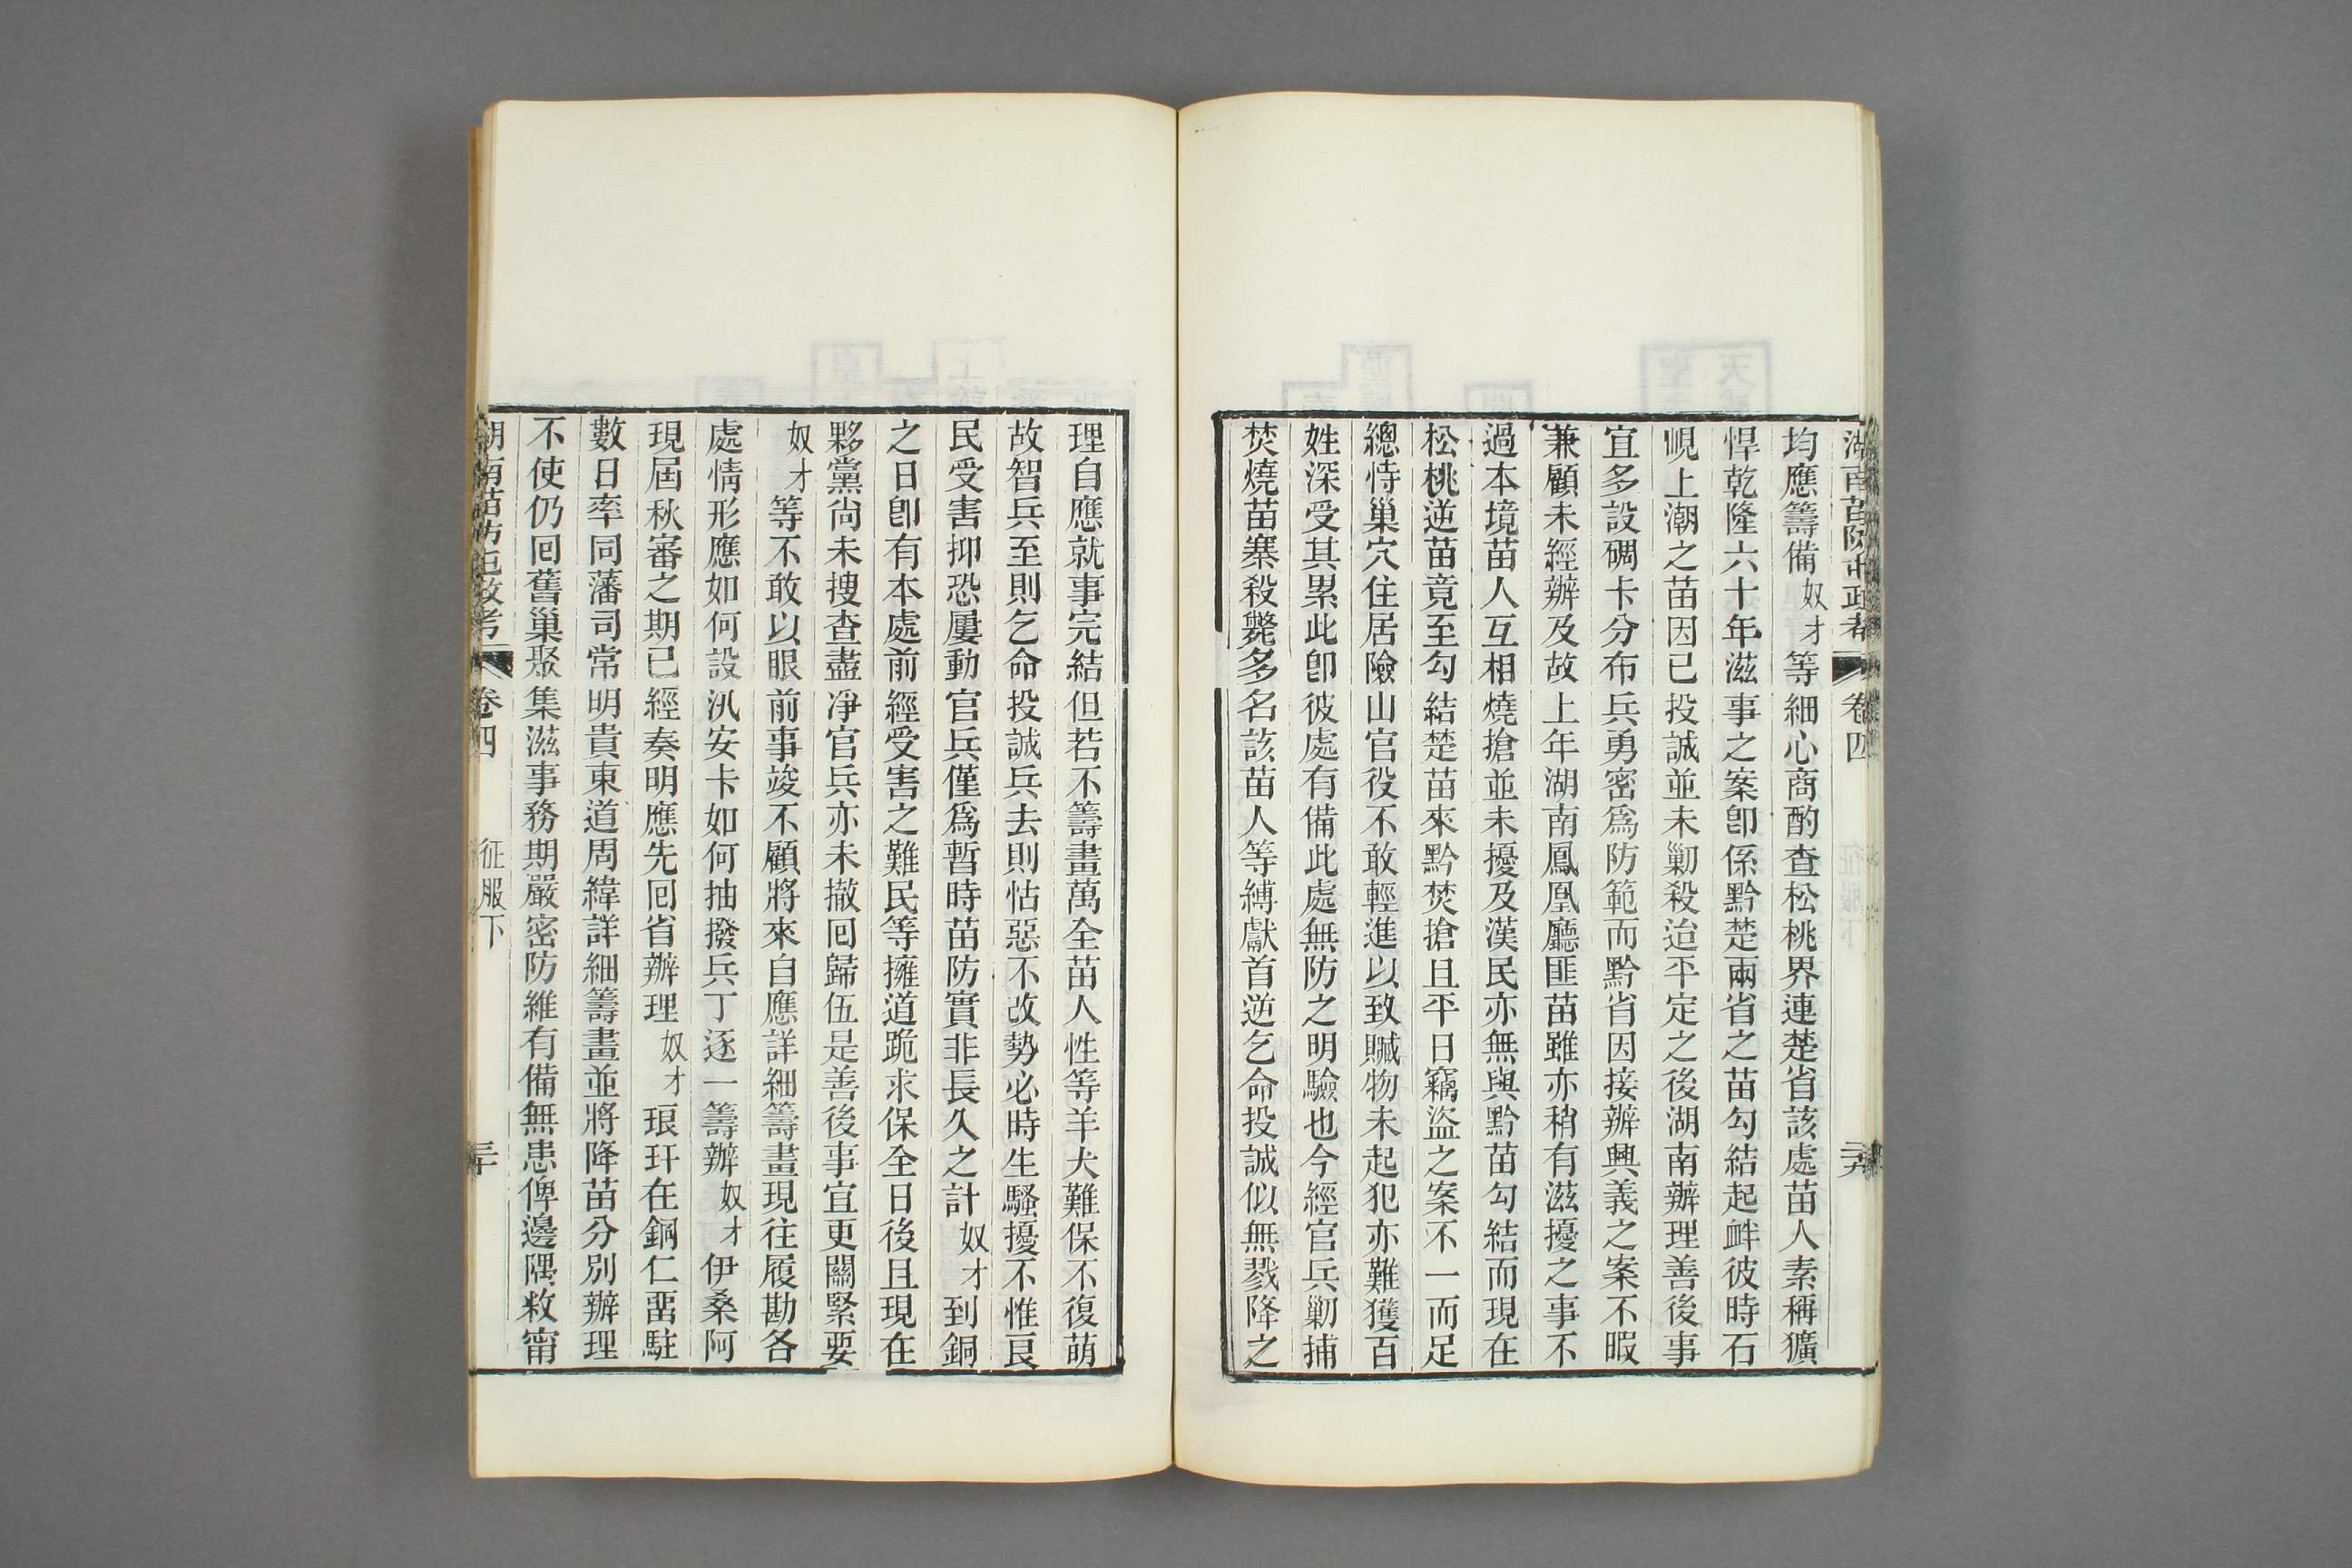 湖南苗防屯政考 卷四 二九
均應籌備奴才等細心商酌查松桃界連楚省該處苗人素稱獷
悍乾隆六十年滋事之案卽係黔楚兩省之苗勾結起衅彼時石
峴上潮之苗因已投誠並未剿殺迨平定之後湖南辦理善後事
宜多設碉卡分布兵勇密爲防範而黔省因接辦興義之案不暇
兼顧未經辦及故上年湖南鳳凰廳匪苗雖亦稍有滋擾之事不
過本境苗人互相燒搶並未擾及漢民亦無與黔苗勾結而現在
松桃逆苗竟至勾結楚苗來黔焚搶且平日竊盜之案不一而足
總恃巢穴住居險山官役不敢輕進以致贓物未起犯亦難獲百
姓深受其累此卽彼處有備此處無防之明驗也今經官兵剿捕
焚燒苗寨殺斃多名該苗人等縛獻首逆乞命投誠似無戮降之
理自應就事完結但若不籌畫萬全苗人性等羊犬難保不復萌
故智兵至則乞命投誠兵去則怙惡不改勢必時生騷擾不惟良
民受害抑恐屢動官兵僅爲暫時苗防實非長久之計奴才到銅
之日卽有本處前經受害之難民等擁道跪求保全日後且現在
夥黨尙未搜查盡淨官兵亦未撤回歸伍是善後事宜更關緊要
奴才等不敢以眼前事竣不顧將來自應詳細籌畫現往履勘各
處情形應如何設汛安卡如何抽撥兵丁逐一籌辦奴才伊桑阿
現屆秋審之期已經奏明應先回省辦理奴才琅玕在銅仁畱駐
數日率同藩司常明貴東道周緯詳細籌畫並將降苗分別辦理
不使仍回舊巢聚集滋事務期嚴密防維有備無患俾邊隅敉甯
湖南苗防屯政考 卷四 征服下 三十